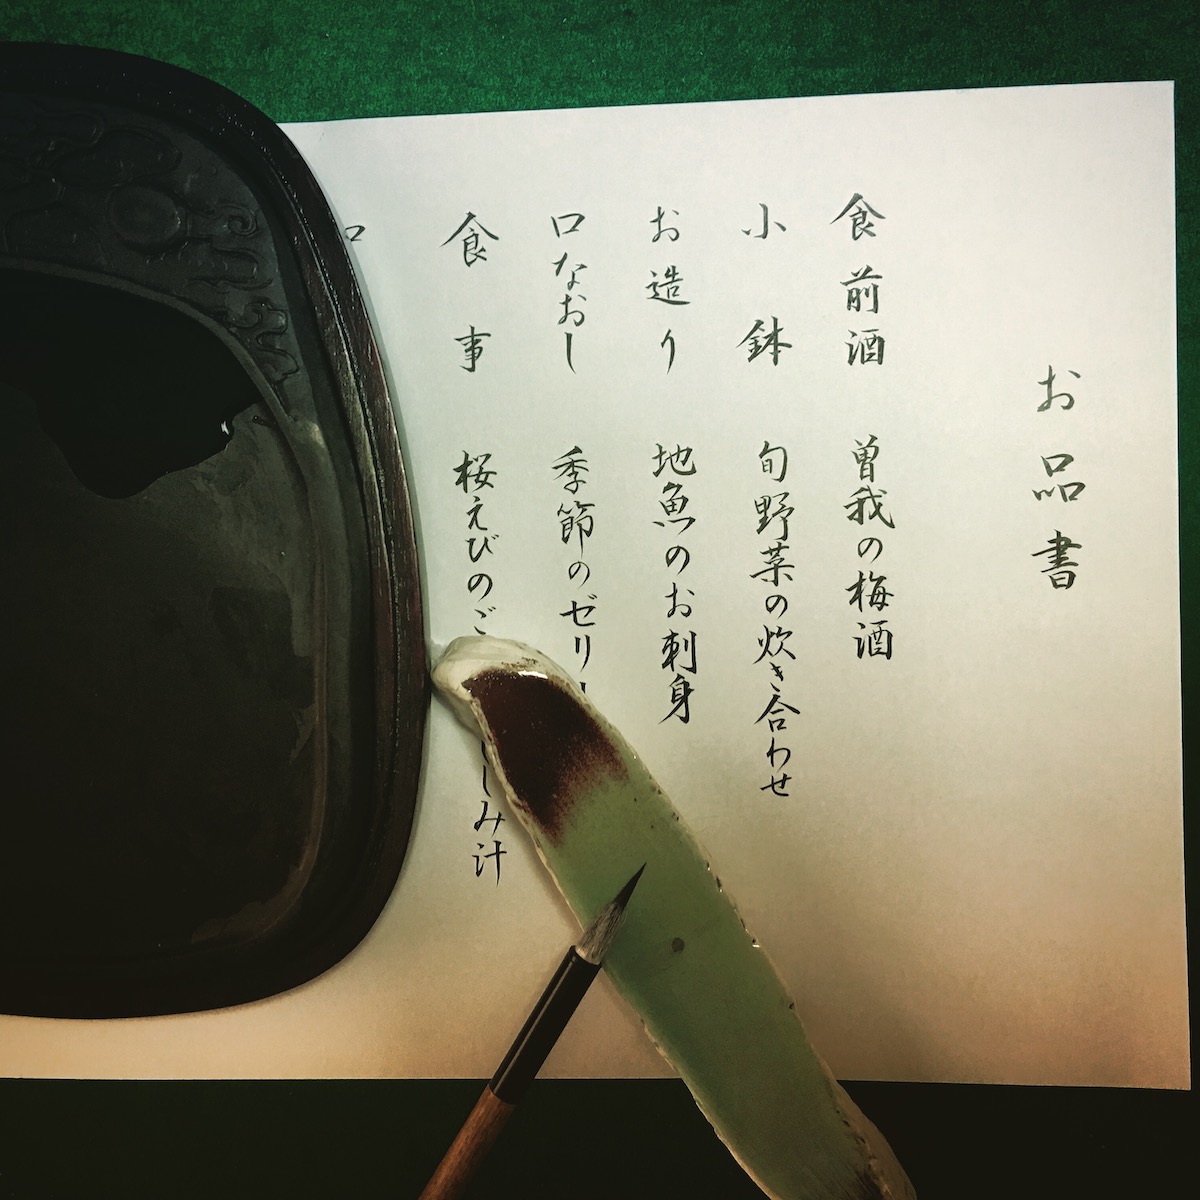 お品書
食前酒 曽我の梅酒
小鉢 旬野菜の炊き合わせ
お造り 地魚のお刺身
口なおし 季節のゼリー
食事 桜えびのご しみ汁